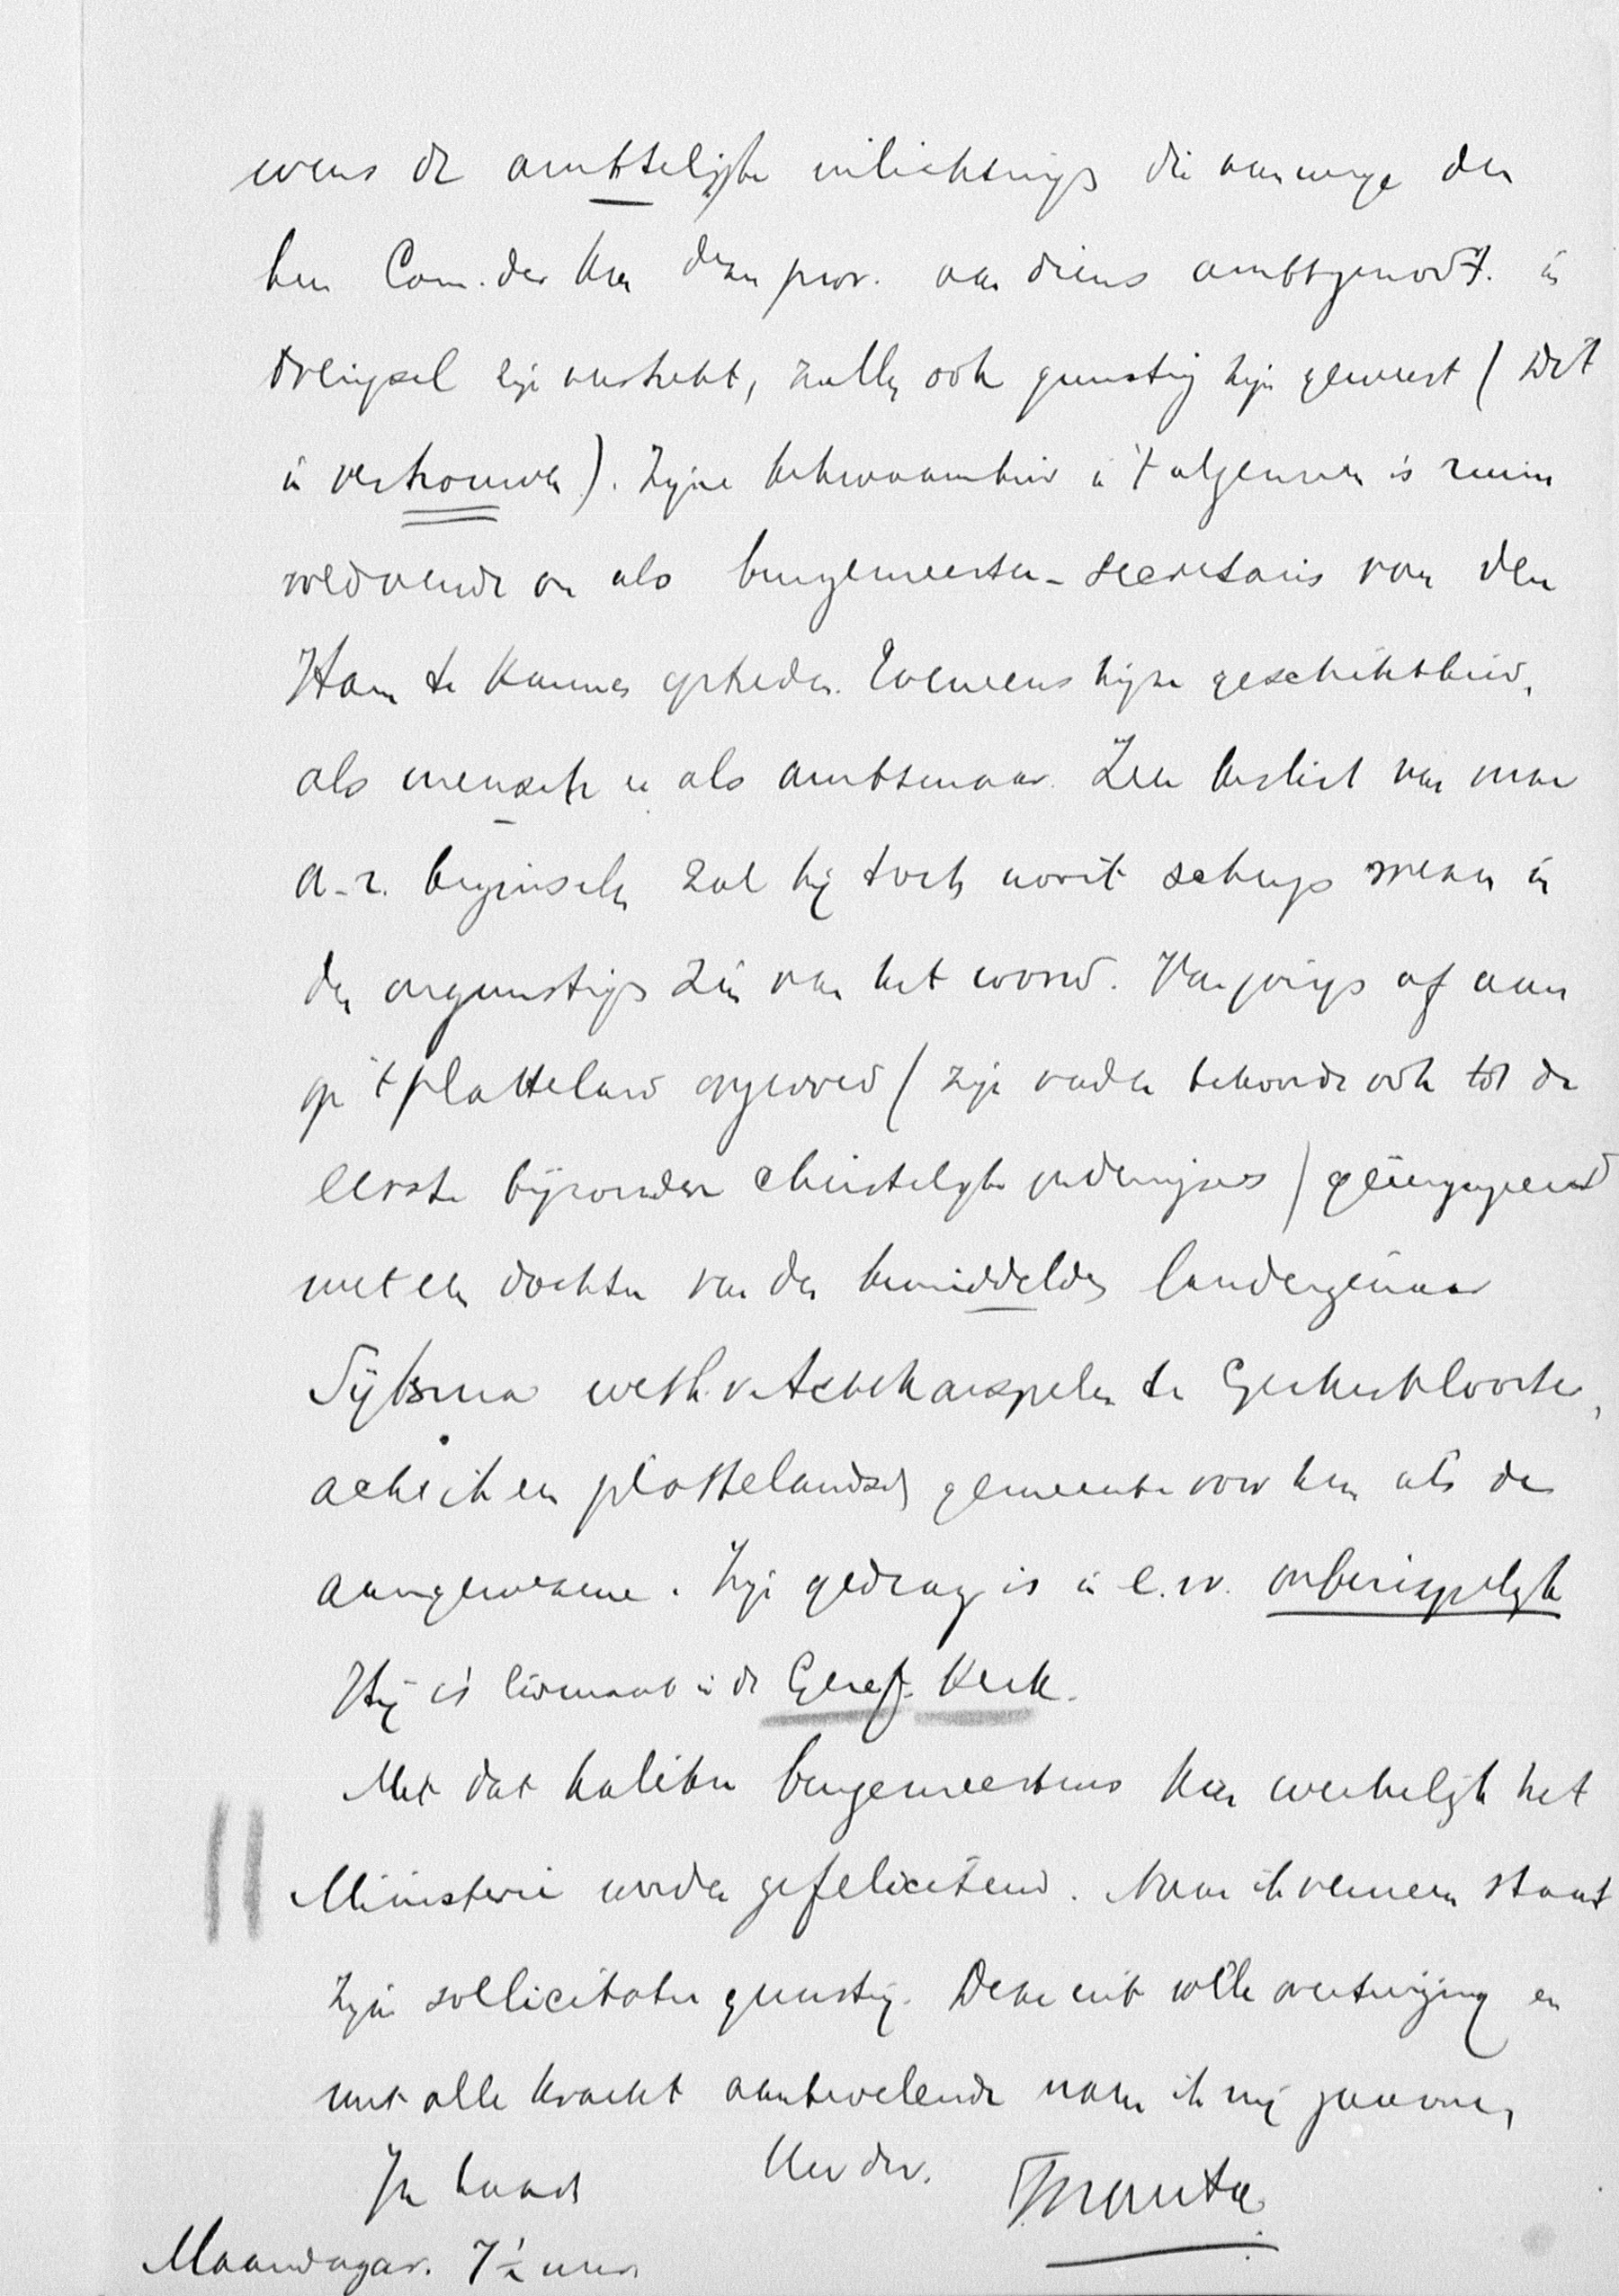 evens de ambtelijke inlichtingen die vanwege den
heer Com. der Kon. dezer prov. aan diens ambtgenoot. in
Overijsel zijn verstrekt, zullen ook gunstig zijn geweest (Dit
in vertrouwen). Zijne bekwaamheid in 't algemeen is ruim
voldoende om als burgemeester-secretaris van den
Ham te kunnen optreden. Eveneens zijne geschiktheid,
als mensch en als ambtenaar. Zeer beslist van onze
a-r. beginselen zal hij toch nooit scherp wezen in
den ongunstigen zin van het woord. Van jongs af aan
op 't platteland opgevoed (zijn vader behoorde ook tot de
eerste bijzondere christelijke onderwijzers) geëngageerd
met een dochter van den bemiddelden landeigenaar
Sijbsma weth. v. Achtkarspelen te Gerkesklooster,
acht ik een plattelandsch gemeente voor hem als de
aangewezene. Zijn gedrag is in e.w. onberispelijk
Hij is lidmaat in de Geref. Kerk.
Met dat kaliber burgemeesters kan werkelijk het
Ministerie worden gefeliciteerd. Naar ik verneem staat
zijn sollicitatie gunstig. Deze uit volle overtuiging en
met alle kracht aanbevelende noem ik mij gaarne,
In haast Uw dw.
Maandagav. 7½ uur